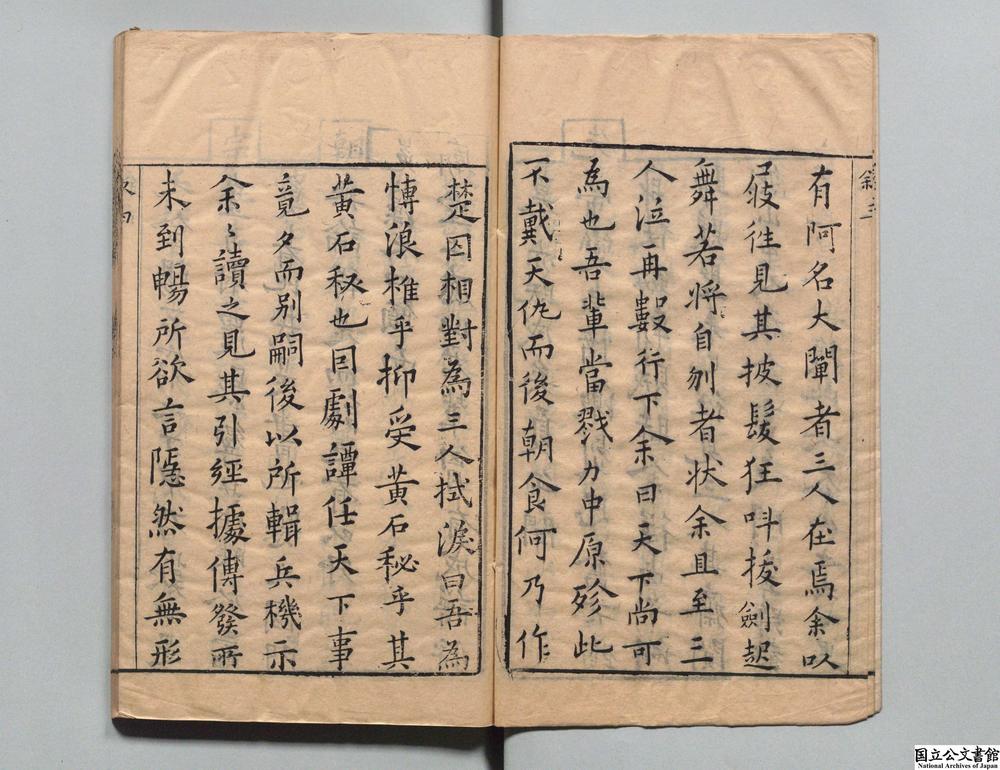 有阿名大闡者三人在焉余以
屐徃見其披髮狂呌拔劍起
舞若將自刎者狀余且至三
人泣再數行下余曰天下尚可
為也吾輩當戮力中原殄此
不戴天仇而後朝食何乃作
楚囚相對為三人拭淚曰吾為
愽浪椎乎抑受黃石秘乎其
黃石秘也因劇譚任天下事
竟夕而別嗣後以所輯兵機示
余〻讀之見其引經據傳發所
未到暢所欲言隱然有無形
国立公文書館
National Archives of Japan